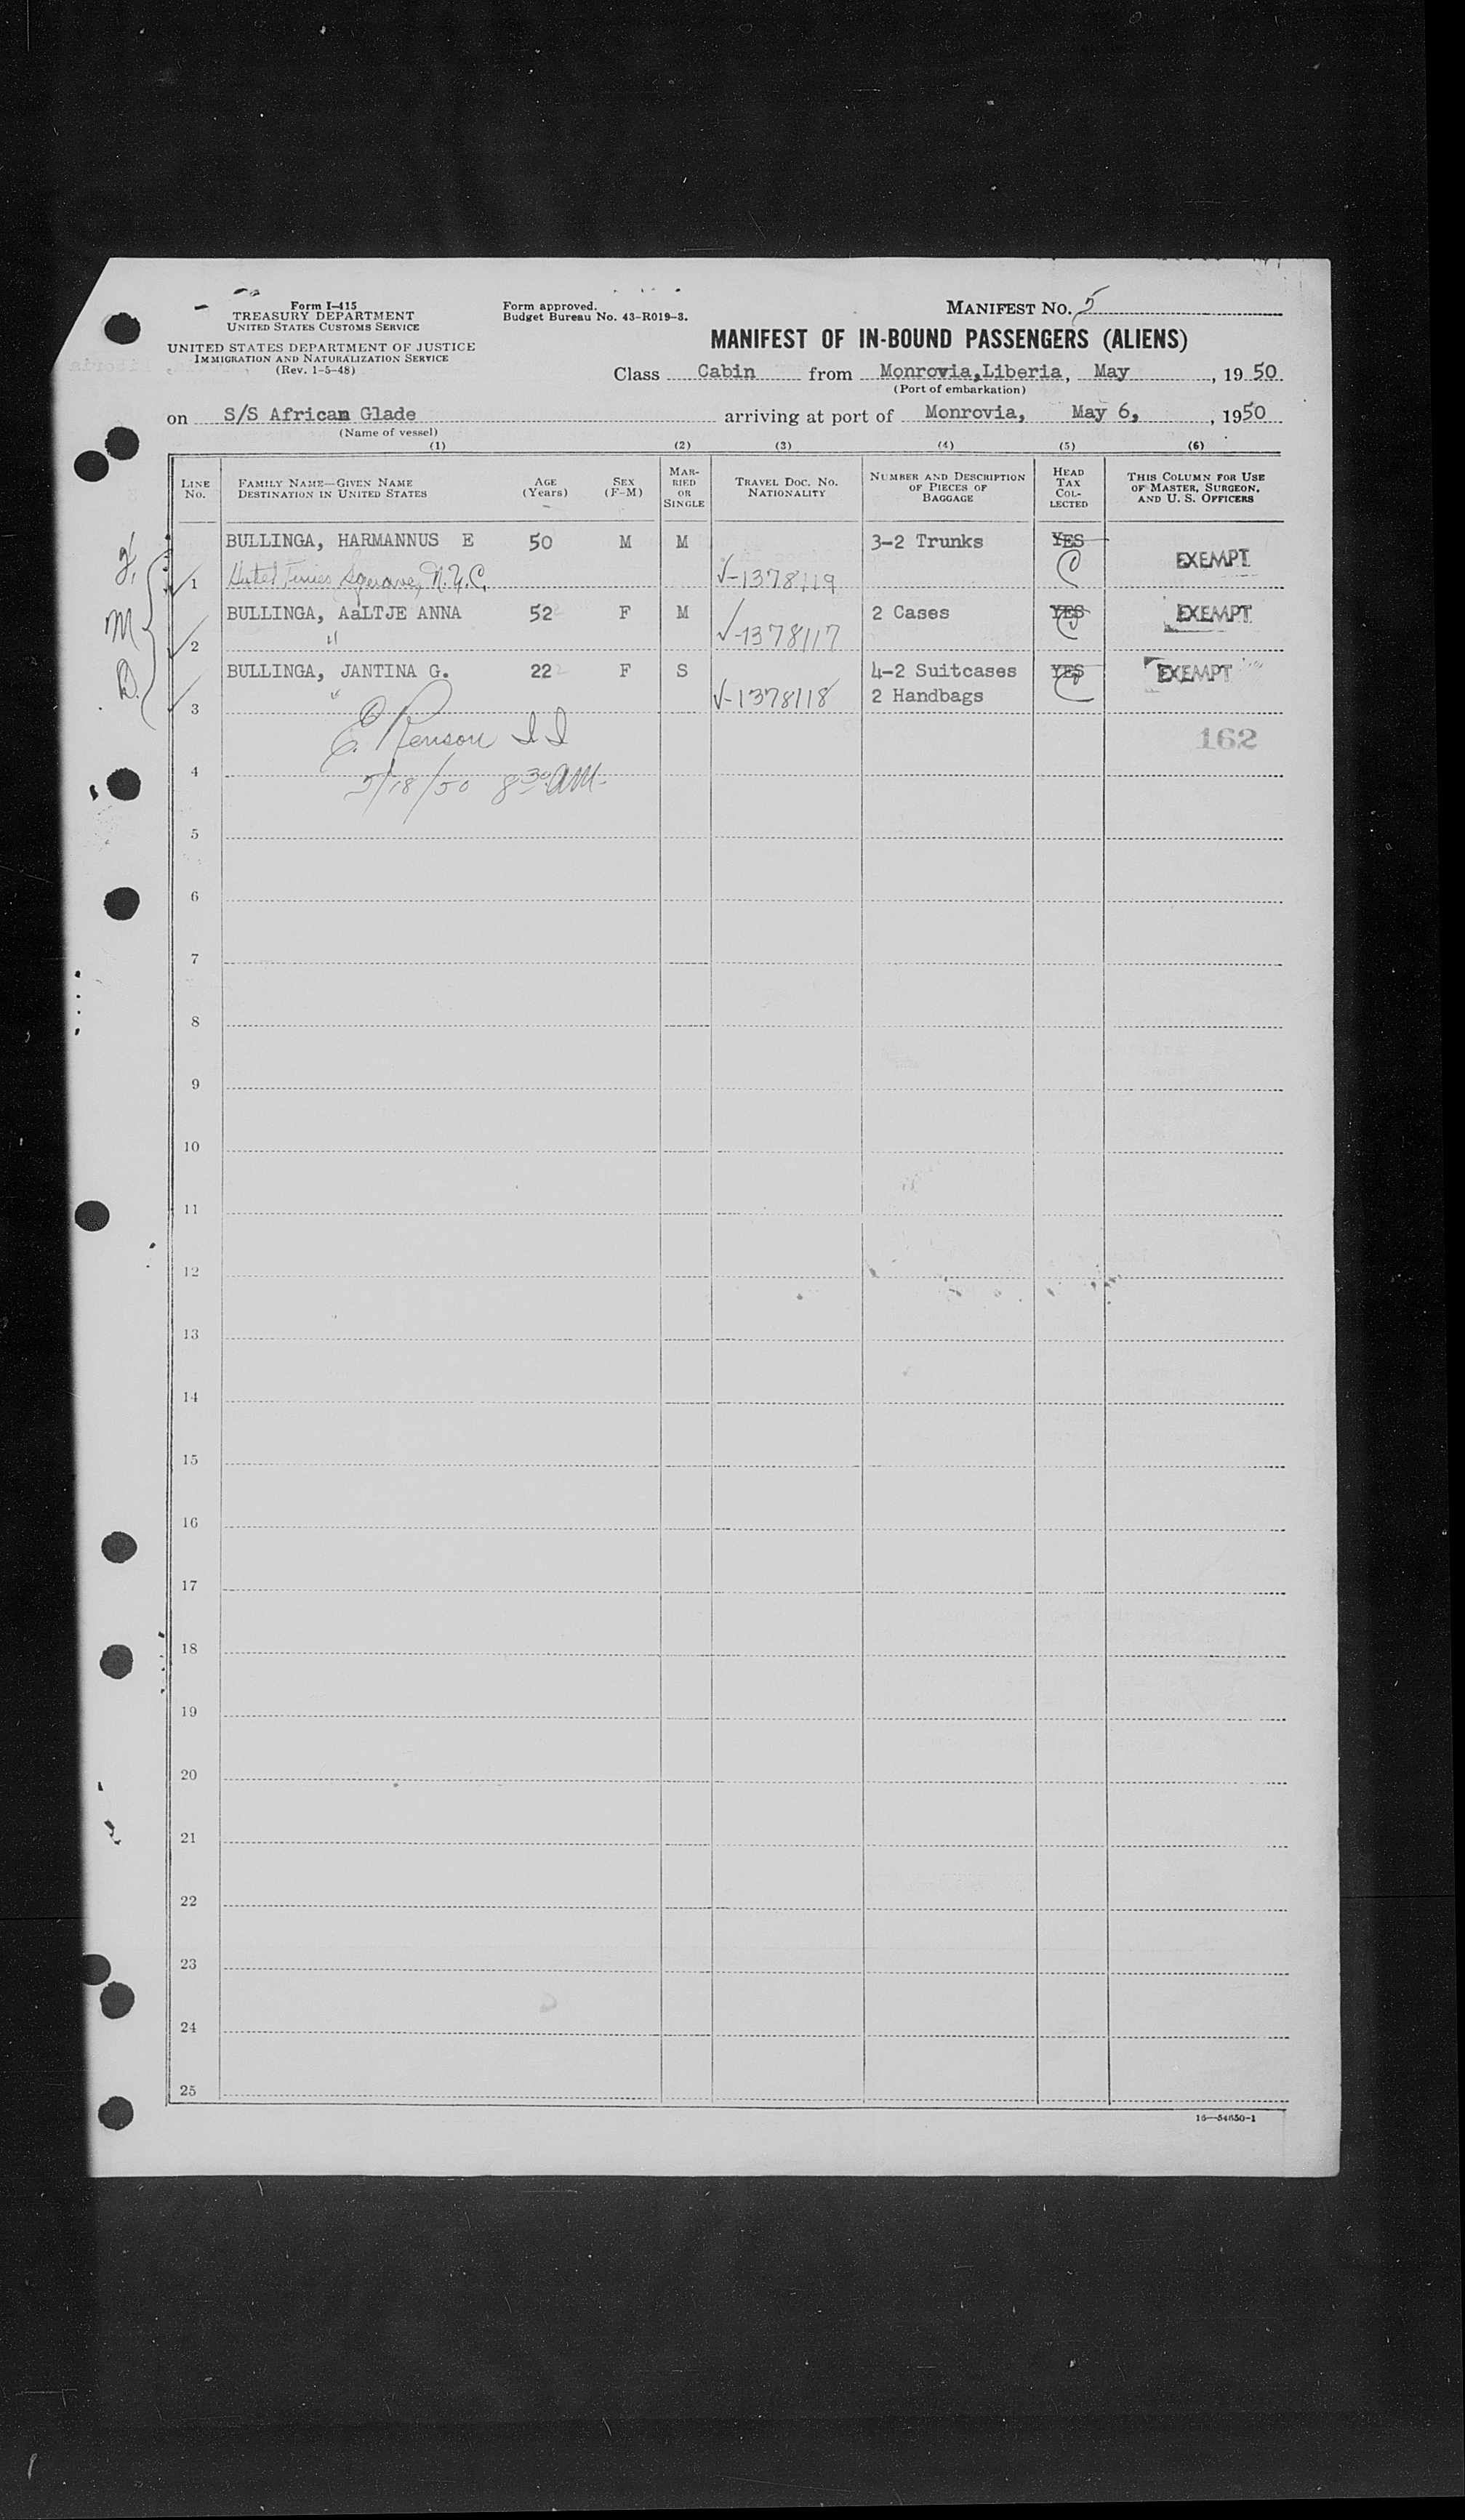 Form I-415
TREASURY DEPARTMENT
UNITED STATES CUSTOMS SERVICE
UNITED STATES DEPARTMENT OF JUSTICE
IMMIGRATION AND NATURALIZATION SERVICE
(Rev. 1-5-48)
Form approved.
Budget Bureau No. 43-R019-3.
MANIFEST NO. 5
MANIFEST OF IN-BOUND PASSENGERS (ALIENS)
Class Cabin from Monrovia,Liberia, May , 19 50
(Port of embarkation)
on S/S African Glade arriving at port of Monrovia, May 6, , 1950
(Name of vessel)
(1) (2) (3) (4) (5) (6)
LINE NO. FAMILY NAME—GIVEN NAME DESTINATION IN UNITED STATES AGE (Years) SEX (F-M) MARRIED OR SINGLE TRAVEL DOC. NO. NATIONALITY NUMBER AND DESCRIPTION OF PIECES OF BAGGAGE HEAD TAX COLLECTED THIS COLUMN FOR USE OF MASTER, SURGEON, AND U. S. OFFICERS
BULLINGA, HARMANNUS E 50 M M 3-2 Trunks YES EXEMPT
1 Hotel Times Square, N.Y.C. V-1378119
BULLINGA, AaLTJE ANNA 52 F M 2 Cases YES EXEMPT
M
2 " V-1378117
BULLINGA, JANTINA G. 22 F S 4-2 Suitcases YES EXEMPT
D.
3 " V-1378118 2 Handbags
E. Renson I I
162
4
5/18/50 8 30 AM
5
6
7
8
9
10
11
12
13
14
15
16
17
18
19
20
21
22
23
24
25
16—54650-1